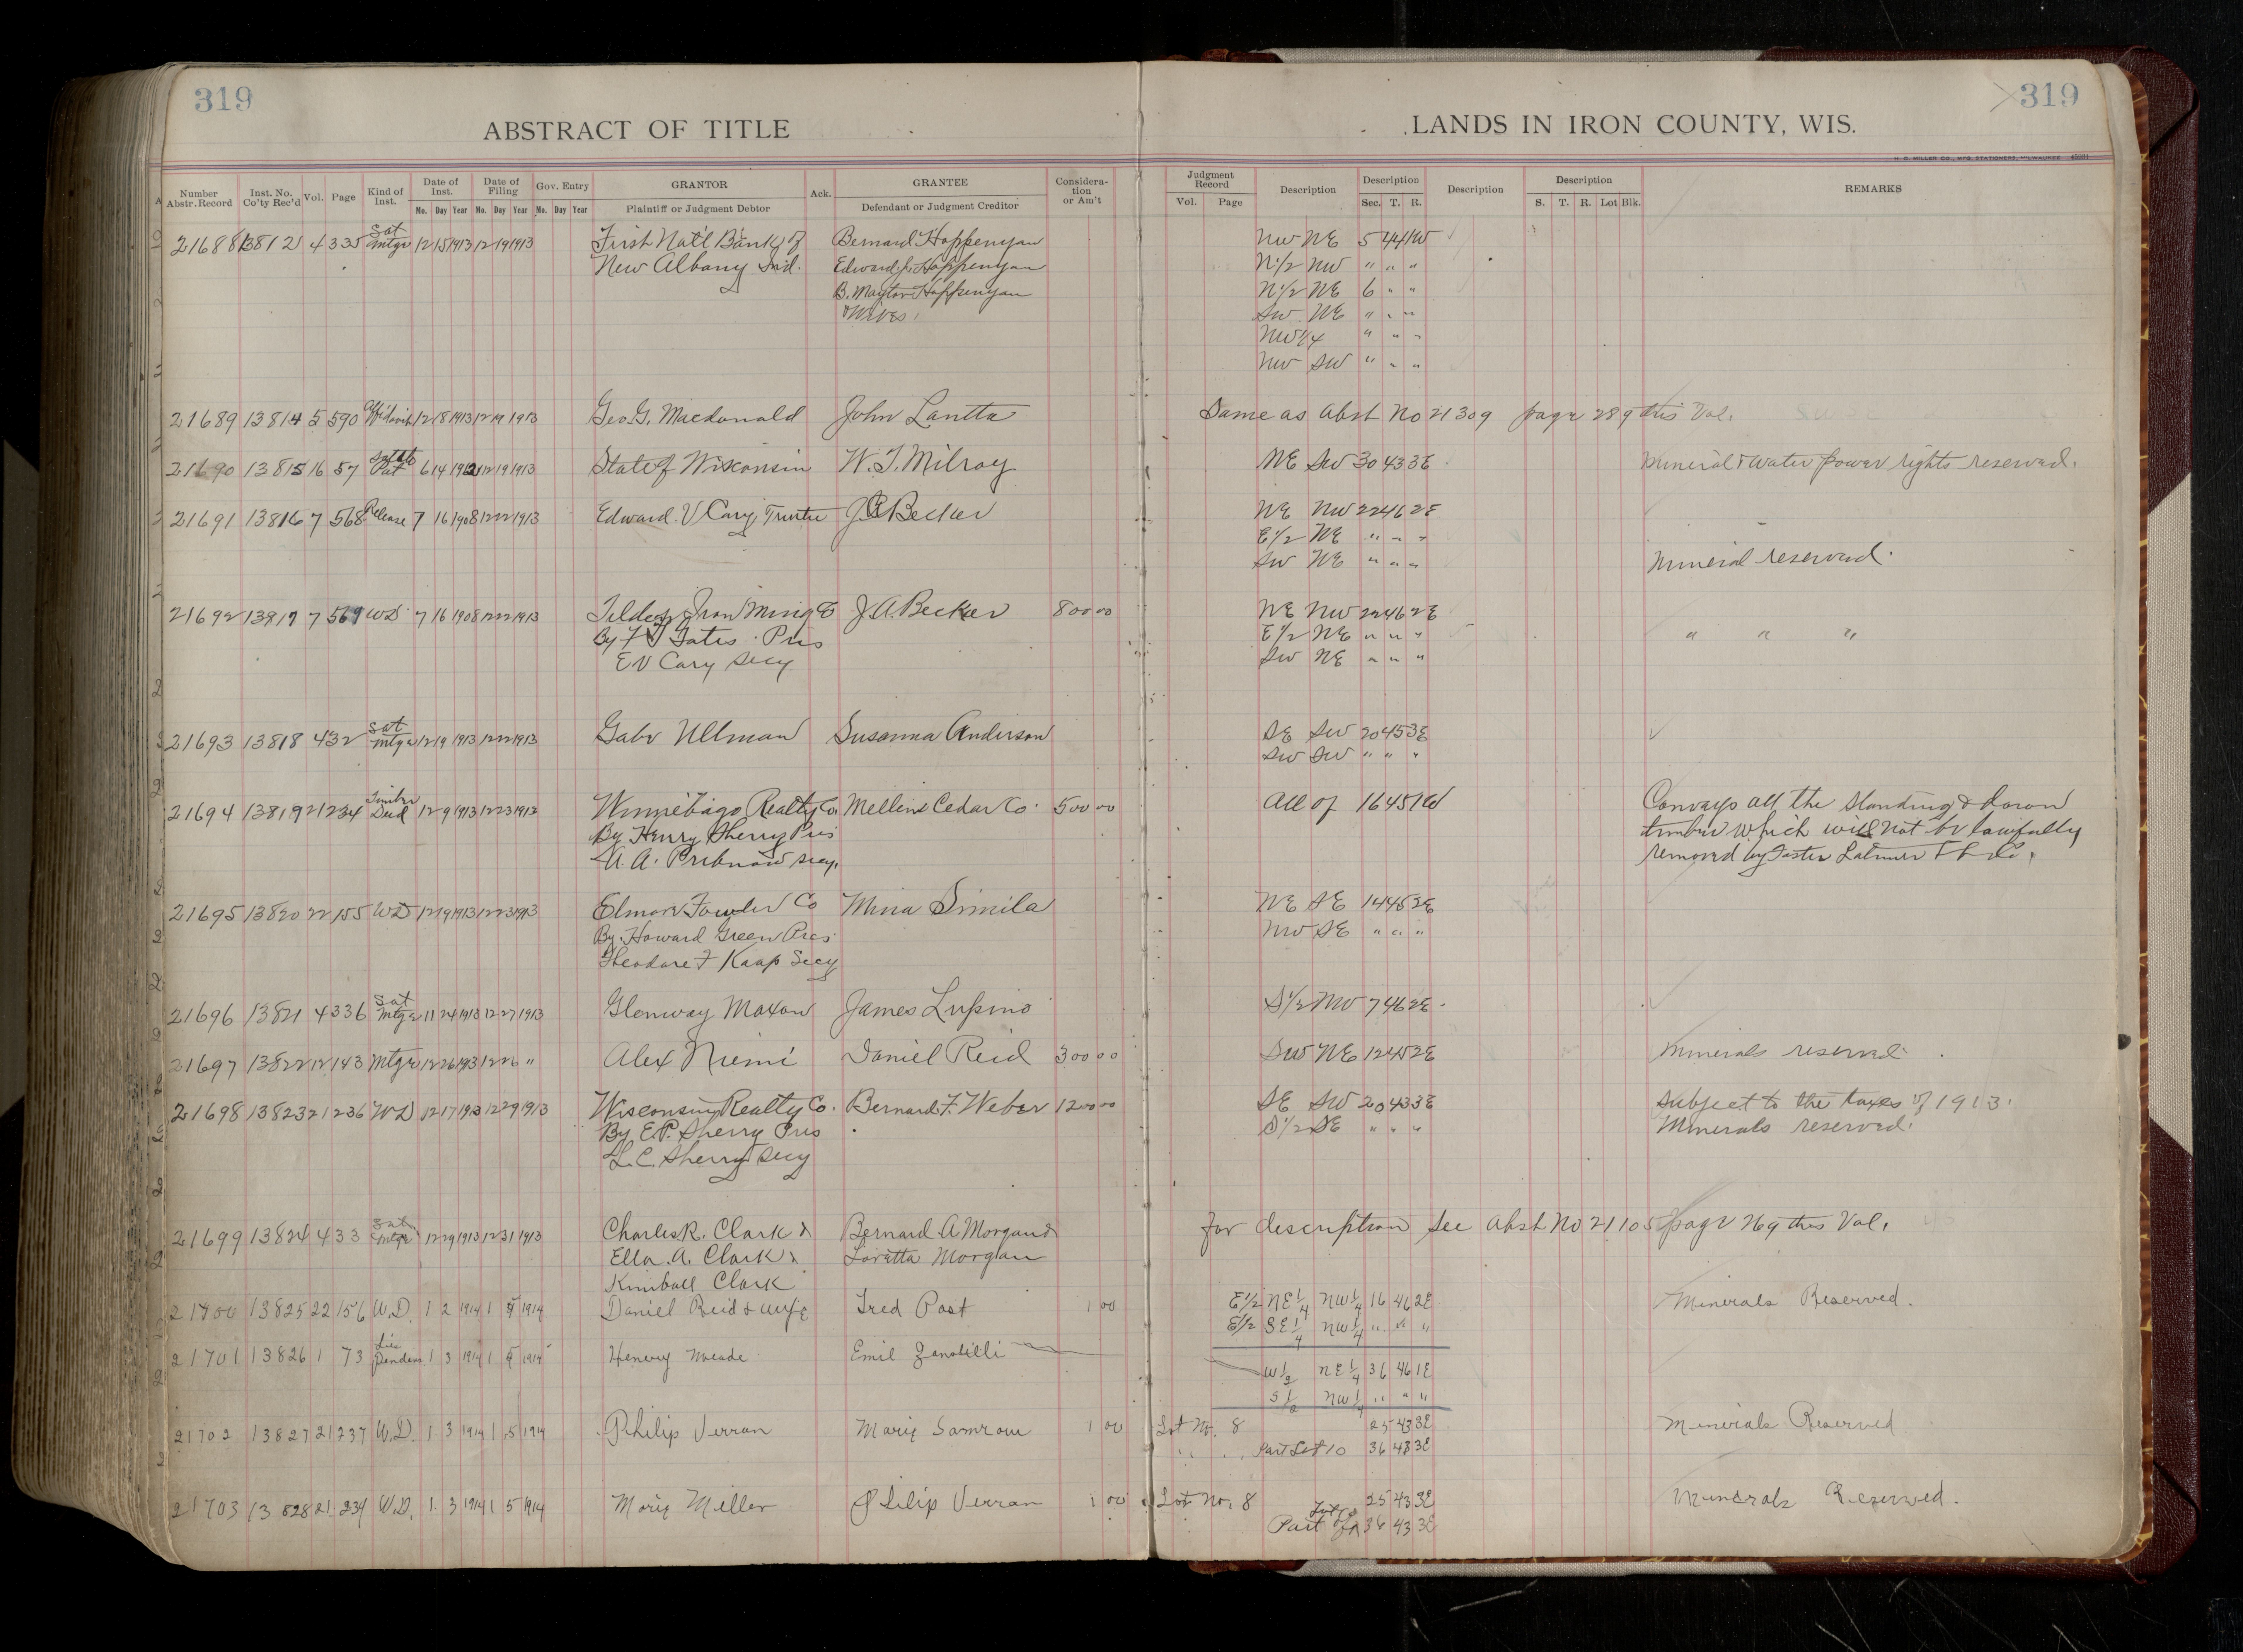 319
319
ABSTRACT OF TITLE
LANDS IN IRON COUNTY, WIS.
H. C. MILLER CO., MFG. STATIONERS, MILWAUKEE
Number Abstr. Record Inst. No. Co'ty Rec'd Vol. Page Kind of Inst. Date of Inst. Mo. Day Year Date of Filing Mo. Day Year Gov. Entry Mo. Day Year GRANTOR Plaintiff or Judgment Debtor Ack. GRANTEE Defendant or Judgment Creditor Consideration or Am't Judgment Record Vol. Page Description Description Sec. T. R. Description Description S. T. R. Lot Blk. REMARKS
21688 13812 4 335 Sat Mtge 12 15 1913 12 19 1913 First Nat'l Bank of Bernard Hoppenyan NW NE 5 44 1W
New Albany Ind. Edward J. Hoppenyan N1/2 NW " " "
B. Maytor Hoppenyan N1/2 NE 6 " "
& Wives SW NE " " "
NW1/4 " " "
NW SW " " "
21689 13814 5 590 Affidavit 12 18 1913 12 19 1913 Geo. G. Macdonald John Lantta Same as Abst No 21309 page 289 this Vol.
21690 13815 16 57 State Pat 6 14 12 19 1913 State of Wisconsin W. T. Milroy NE SW 30 43 3E Mineral & Water power rights reserved.
21691 13816 7 568 Release 7 16 1908 12 22 1913 Edward V Cary, Trustee J A Becker NE NW 22 46 2E
E1/2 NE " " "
SW NE " " " Mineral reserved.
21692 13817 7 569 WD 7 16 1908 12 22 1913 Tilden Iron Mining Co J. A. Becker 800 00 NE NW 22 46 2E
By F T Gates Pres E1/2 NE " " " " " "
E V Cary Secy SW NE " " "
21693 13818 4 32 Sat Mtge 12 19 1913 12 22 1913 Gabe Ullman Susanna Anderson SE SW 20 45 3E
SW SW " " "
21694 13819 21 234 Timber Deed 12 9 1913 12 23 1913 Winnebago Realty Co. Mellen Cedar Co 500 00 All of 16 45 1W Conveys all the standing & down
By Henry Sherry Pres timber which will not be lawfully
A. A. Pribnow Secy. removed by Foster Latimer Co.
21695 13820 22 155 WD 12 19 1913 12 23 1913 Elmore Fowler Co Mina Simila NE SE 14 45 2E
By Howard Green Pres NW SE " " "
Theodore F Kaap Secy
21696 13821 4 336 Sat Mtge 11 24 1913 12 27 1913 Glenway Maxon James Lupino S1/2 NW 7 46 2E
21697 13822 12 143 Mtge 12 26 1913 12 26 " Alex Niemi Daniel Reid 300 00 SW NE 12 45 2E Minerals reserved
21698 13823 21 236 WD 12 17 1913 12 29 1913 Wisconsin Realty Co. Bernard F. Weber 1200 00 SE SW 20 43 3E Subject to the taxes of 1913.
By E. P. Sherry Pres S1/2 SE " " " Minerals reserved.
L. C. Sherry Secy
21699 13824 4 33 Sat Mtge 12 29 1913 12 31 1913 Charles R. Clark & Bernard A Morgan & for description see Abst No 21105 page 269 this Vol.
Ella A. Clark & Loretta Morgan
Kimball Clark
21700 13825 22 156 W.D. 1 2 1914 1 5 1914 Daniel Reid & wife Fred Past 1 00 E1/2 NE1/4 NW1/4 16 46 2E Minerals Reserved.
E1/2 SE1/4 NW1/4 " " "
21701 13826 1 73 Lis Pendens 1 3 1914 1 5 1914 Henery Meade Emil Zanotilli W1/2 NE1/4 36 46 1E
S1/2 NW1/4 " " "
21702 13827 21 237 W.D. 1 3 1914 1 5 1914 Philip Verran Mary Samrow 1 00 Lot No. 8 25 43 3E Minerals Reserved
" " Part Lot 10 36 43 3E
21703 13828 21 234 W.D. 1 3 1914 1 5 1914 Mary Miller Philip Verran 1 00 Lot No. 8 25 43 3E Minerals Reserved.
Part of 36 43 3E